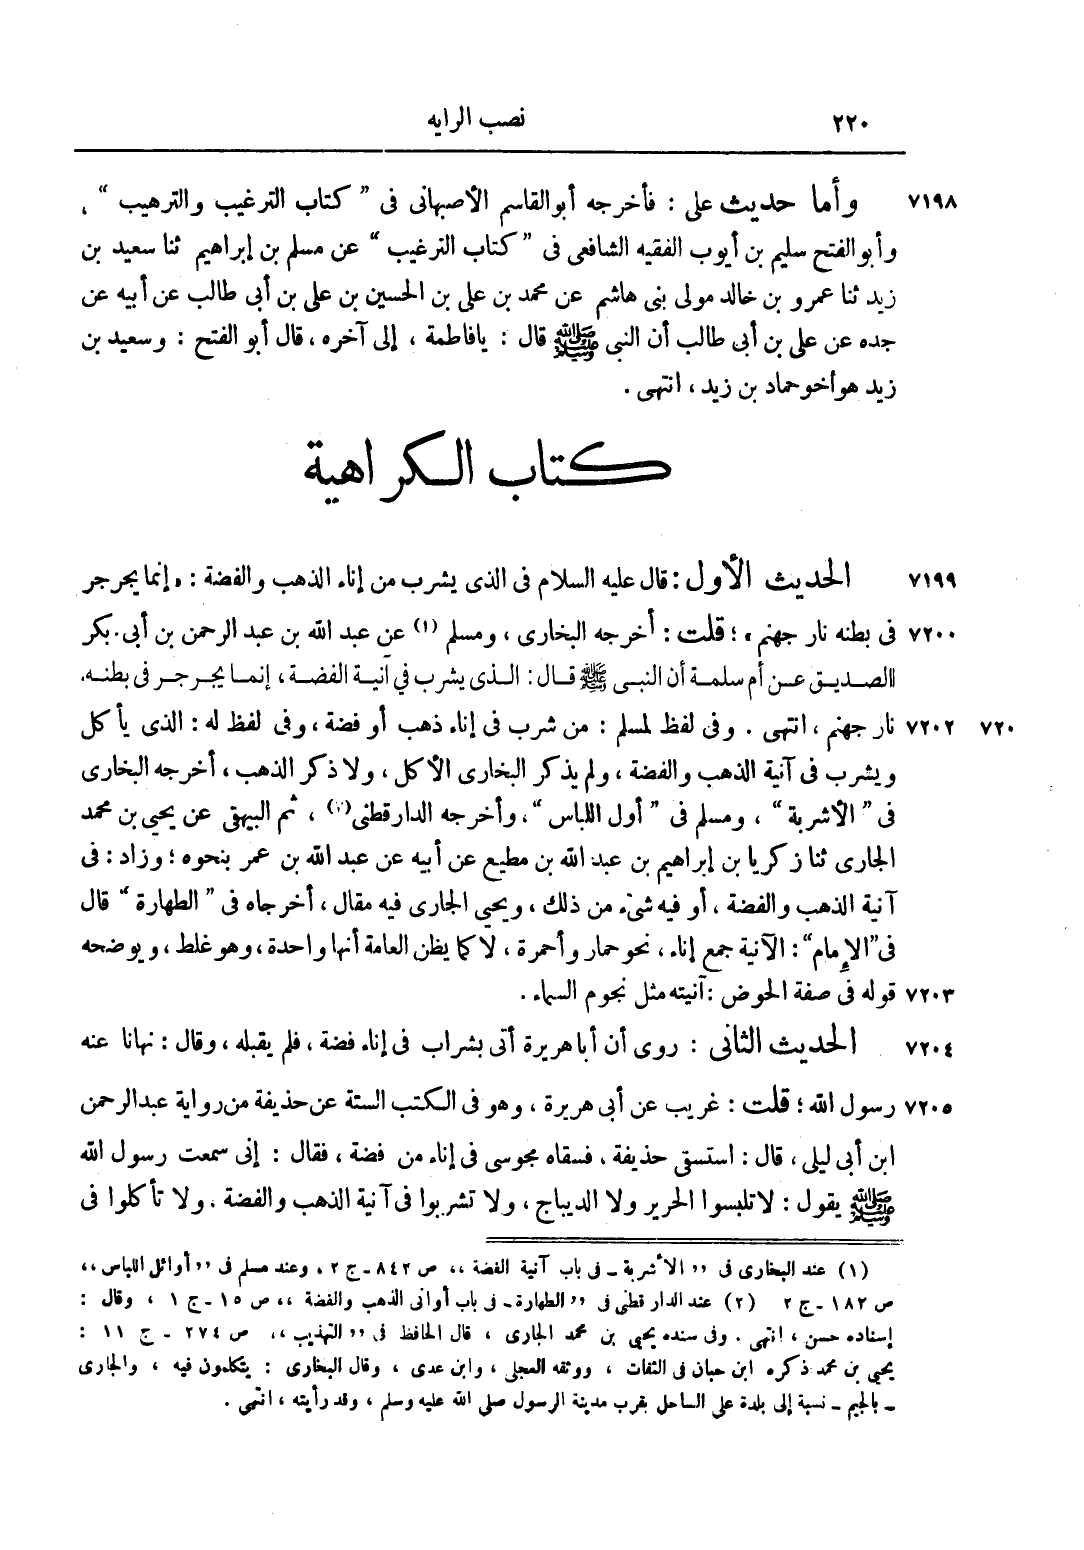 ٢٢٠ نصب الرايه
٧١٩٨ وأما حديث على : فأخرجه أبوالقاسم الأصبهانى فى ” كتاب الترغيب والترهيب “ ،
وأبو الفتح سليم بن أيوب الفقيه الشافعى فى ” كتاب الترغيب “ عن مسلم بن إبراهيم ثنا سعيد بن
زيد ثنا عمرو بن خالد مولى بنى هاشم عن محمد بن على بن الحسين بن على بن أبى طالب عن أبيه عن
جده عن على بن أبى طالب أن النبى ﷺ قال : يافاطمة ، إلى آخره ، قال أبو الفتح : وسعيد بن
زيد هوأخوحماد بن زيد ، انتهى .
كتاب الكراهية
٧١٩٩ الحديث الأول : قال عليه السلام فى الذى يشرب من إناء الذهب والفضة : « إنما يجرجر
٧٢٠٠ فى بطنه نار جهنم » ؛ قلت : أخرجه البخارى ، ومسلم (١) عن عبد الله بن عبد الرحمن بن أبى بكر
الصديق عن أم سلمة أن النبى ﷺ قال : الذى يشرب في آنية الفضة ، إنما يجرجر فى بطنه
٧٢٠ ٧٢٠٢ نار جهنم ، انتهى . وفى لفظ لمسلم : من شرب فى إناء ذهب أو فضة ، وفى لفظ له : الذى يأكل
ويشرب فى آنية الذهب والفضة ، ولم يذكر البخارى الأكل ، ولا ذكر الذهب ، أخرجه البخارى
فى ” الأشربة “ ، ومسلم فى ” أول اللباس “ ، وأخرجه الدارقطنى (٢) ، ثم البيهقى عن يحيى بن محمد
الجارى ثنا زكريا بن إبراهيم بن عبد الله بن مطيع عن أبيه عن عبد الله بن عمر بنحوه ؛ وزاد : فى
آنية الذهب والفضة ، أو فيه شىء من ذلك ، ويحيى الجارى فيه مقال ، أخرجاه فى ” الطهارة “ قال
فى ”الإمام“ : الآنية جمع إناء ، نحو حمار وأحمرة ، لا كما يظن العامة أنها واحدة ، وهو غلط ، ويوضحه
٧٢٠٣ قوله فى صفة الحوض : آنيته مثل نجوم السماء .
٧٢٠٤ الحديث الثانى : روى أن أباهريرة أتى بشراب فى إناء فضة ، فلم يقبله ، وقال : نهانا عنه
٧٢٠٥ رسول الله ؛ قلت : غريب عن أبى هريرة ، وهو فى الكتب الستة عن حذيفة من رواية عبدالرحمن
ابن أبى ليلى ، قال : استسقى حذيفة ، فسقاه مجوسى فى إناء من فضة ، فقال : إنى سمعت رسول الله
ﷺ يقول : لاتلبسوا الحرير ولا الديباج ، ولا تشربوا فى آنية الذهب والفضة . ولا تأكلوا فى
(١) عند البخارى فى ,, الأشربة ـ فى باب آنية الفضة ،، ص ٨٤٢ ـ ج ٢ ، وعند مسلم فى ,, أوائل اللباس ،،
ص ١٨٢ ـ ج ٢ (٢) عند الدار قطنى فى ,, الطهارة ـ فى باب أوانى الذهب والفضة ،، ص ١٥ ـ ج ١ ، وقال :
إسناده حسن ، انتهى . وفى سنده يحيى بن محمد الجارى ، قال الحافظ فى ,, التهذيب ،، ص ٢٧٤ ـ ج ١١ :
يحيى بن محمد ذكره ابن حبان فى الثقات ، ووثقه العجلى ، وابن عدى ، وقال البخارى : يتكلمون فيه ، والجارى
ـ بالجيم ـ نسبة إلى بلدة على الساحل بقرب مدينة الرسول صلى الله عليه وسلم ، وقد رأيته ، انتهى .